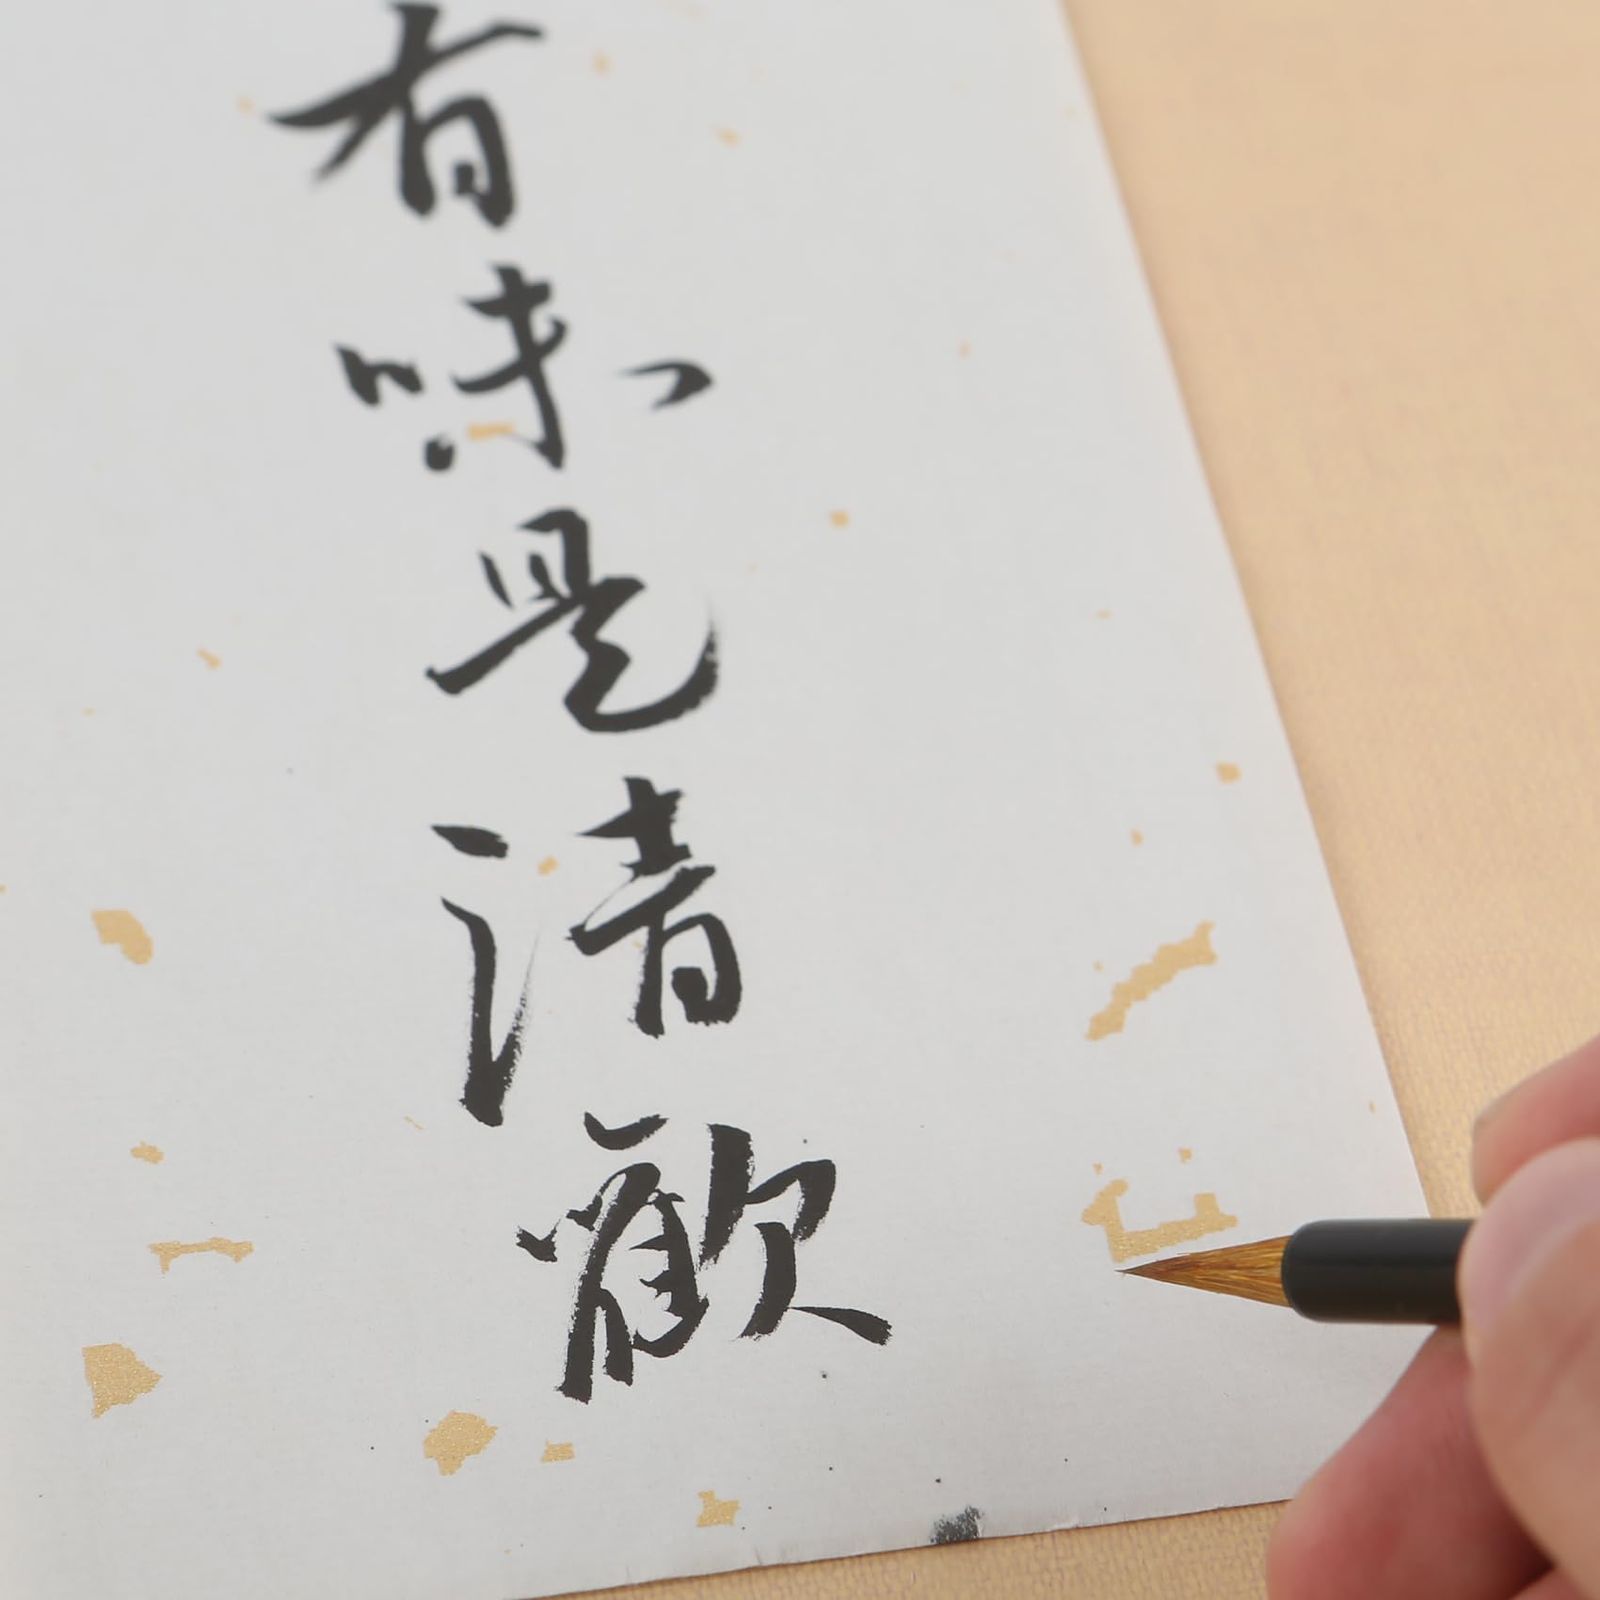 有味是清歡